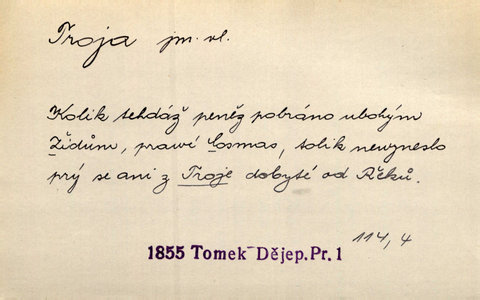 Troja jm. vl.
Kolik tehdáž peněz pobráno ubohým
Židům, prawí Cosmas, tolik newyneslo
prý se ani z Troje dobyté od Řeků.
114,4
1855 Tomek Dějep. Pr. 1